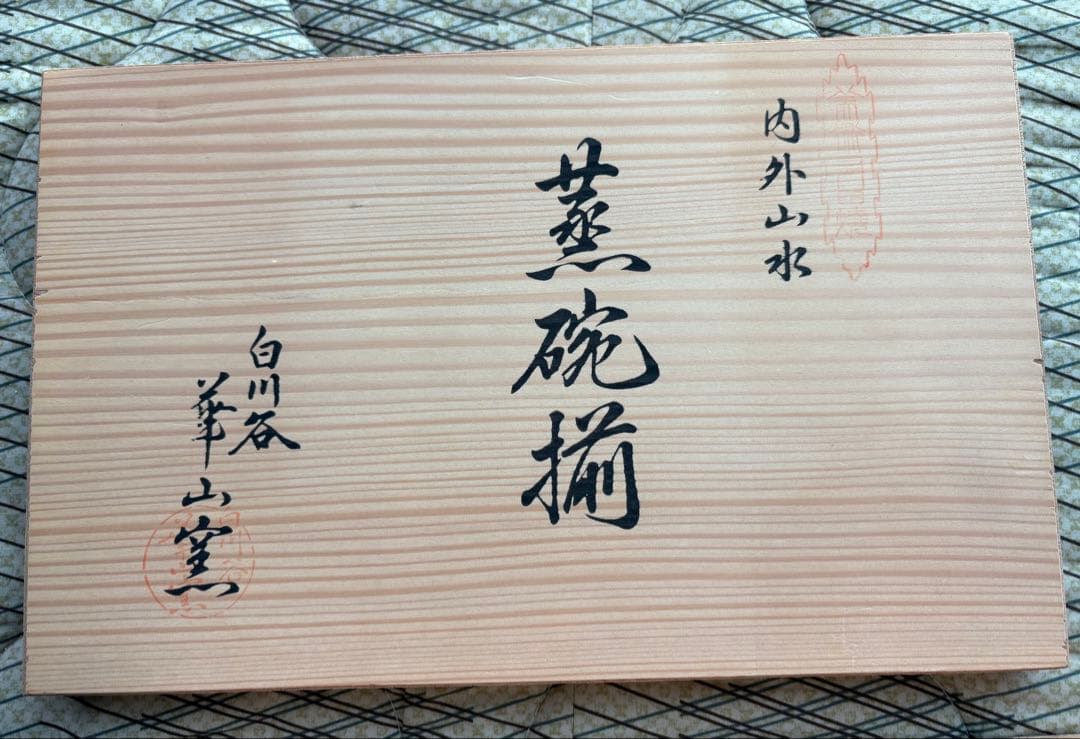 内外山水
蒸碗揃
白川谷
華山窯